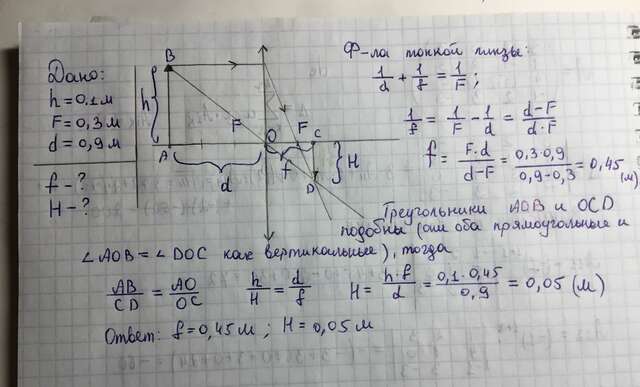 Дано:
h = 0,1 м
F = 0,3 м
d = 0,9 м
f - ?
H - ?
B
h
A
d
F
O
f
F
C
H
D
Ф-ла тонкой линзы:
1/d + 1/f = 1/F ;
1/f = 1/F - 1/d = d-F/d·F
f = F·d/d-F = 0,3·0,9/0,9-0,3 = 0,45 (м)
Треугольники AOB и OCD
подобны (они оба прямоугольные и
∠AOB = ∠DOC как вертикальные), тогда
AB/CD = AO/OC h/H = d/f H = h·f/d = 0,1·0,45/0,9 = 0,05 (м)
Ответ: f = 0,45 м ; H = 0,05 м